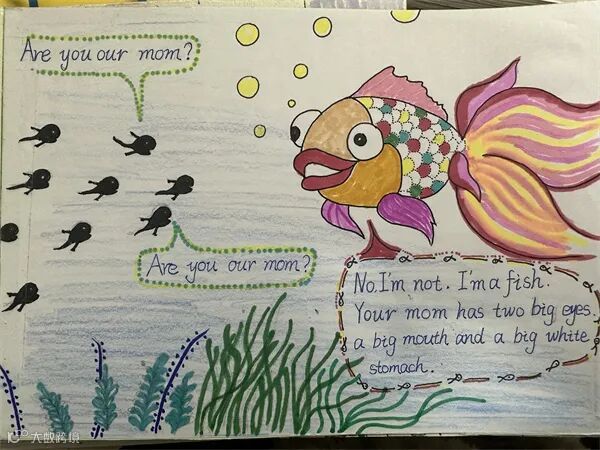 Are you our mom?
Are you our mom?
No. I'm not. I'm a fish.
Your mom has two big eyes.
a big mouth and a big white
stomach.
大数跨境